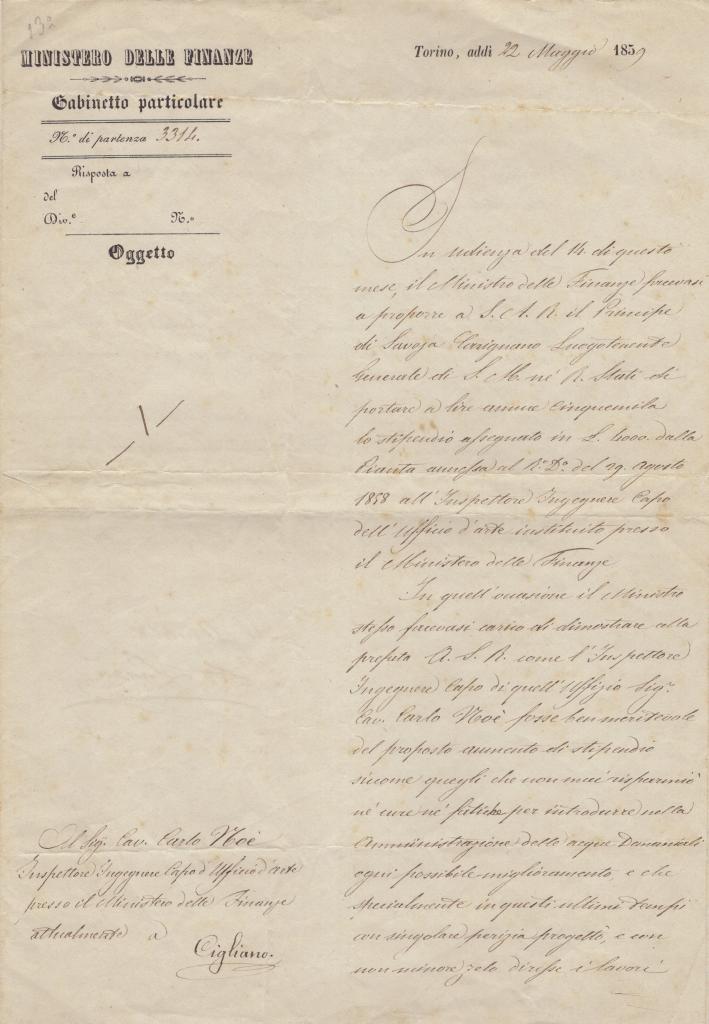 13a
MINISTERO DELLE FINANZE
Gabinetto particolare
N.º di partenza 3314.
Risposta a
del
Div.e N.º
Oggetto
Torino, addì 22 Maggio 1859
In udienza del 14 di questo
mese, il Ministro delle Finanze facevasi
a proporre a S. A. R. il Principe
di Savoja Carignano Luogotenente
Generale di S. M. ne' R. Stati di
portare a lire annue cinquemila
lo stipendio assegnato in L. 4000. dalla
Pianta annessa al R.º D.º del 29. agosto
1858 all'Inspettore Ingegnere Capo
dell'Ufficio d'arte instituito presso
il Ministero delle Finanze
In quell'occasione il Ministro
stesso facevasi carico di dimostrare alla
prefata A. S. R. come l'Inspettore
Ingegnere Capo di quell'Uffizio Sig.r
Cav. Carlo Noè fosse ben meritevole
del proposto aumento di stipendio
siccome quegli che non mai risparmiò
nè cure nè fatiche per introdurre nella
Amministrazione delle acque Demaniali
ogni possibile miglioramento, e che
specialmente in questi ultimi tempi
con singolare perizia progettò, e con
non minore zelo diresse i lavori
Al Sig. Cav. Carlo Noè
Inspettore Ingegnere Capo d'Ufficio d'arte
presso il Ministero delle Finanze
attualmente a
Cigliano.